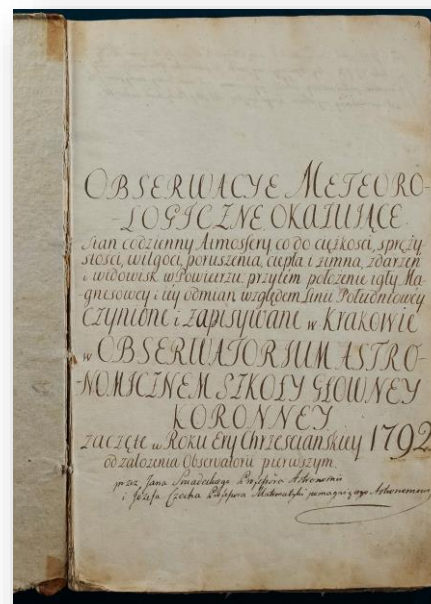 OBSERWACYE METEORO-
-LOGICZNE OKAZUIĄCE
stan codzienny Atmosfery co do ciężkości, spręży-
stości, wilgoci, poruszenia, ciepła i zimna, zdarzeń
i widowisk w Powietrzu, przytem położenie igły Ma-
gnesowey i iey odmian względem Linii Południowey
czynione i zapisywane w Krakowie
w OBSERWATORIUM ASTRO-
-NOMICZNEM SZKOŁY GŁOWNEY
KORONNEY
zaczęte w Roku Ery Chrześciańskiey 1792
od założenia Obserwatorii pierwszym.
przez Jana Sniadeckiego Professora Astronomii
i Józefa Czecha Professora Matematyki pomagaiącego Astronomowi